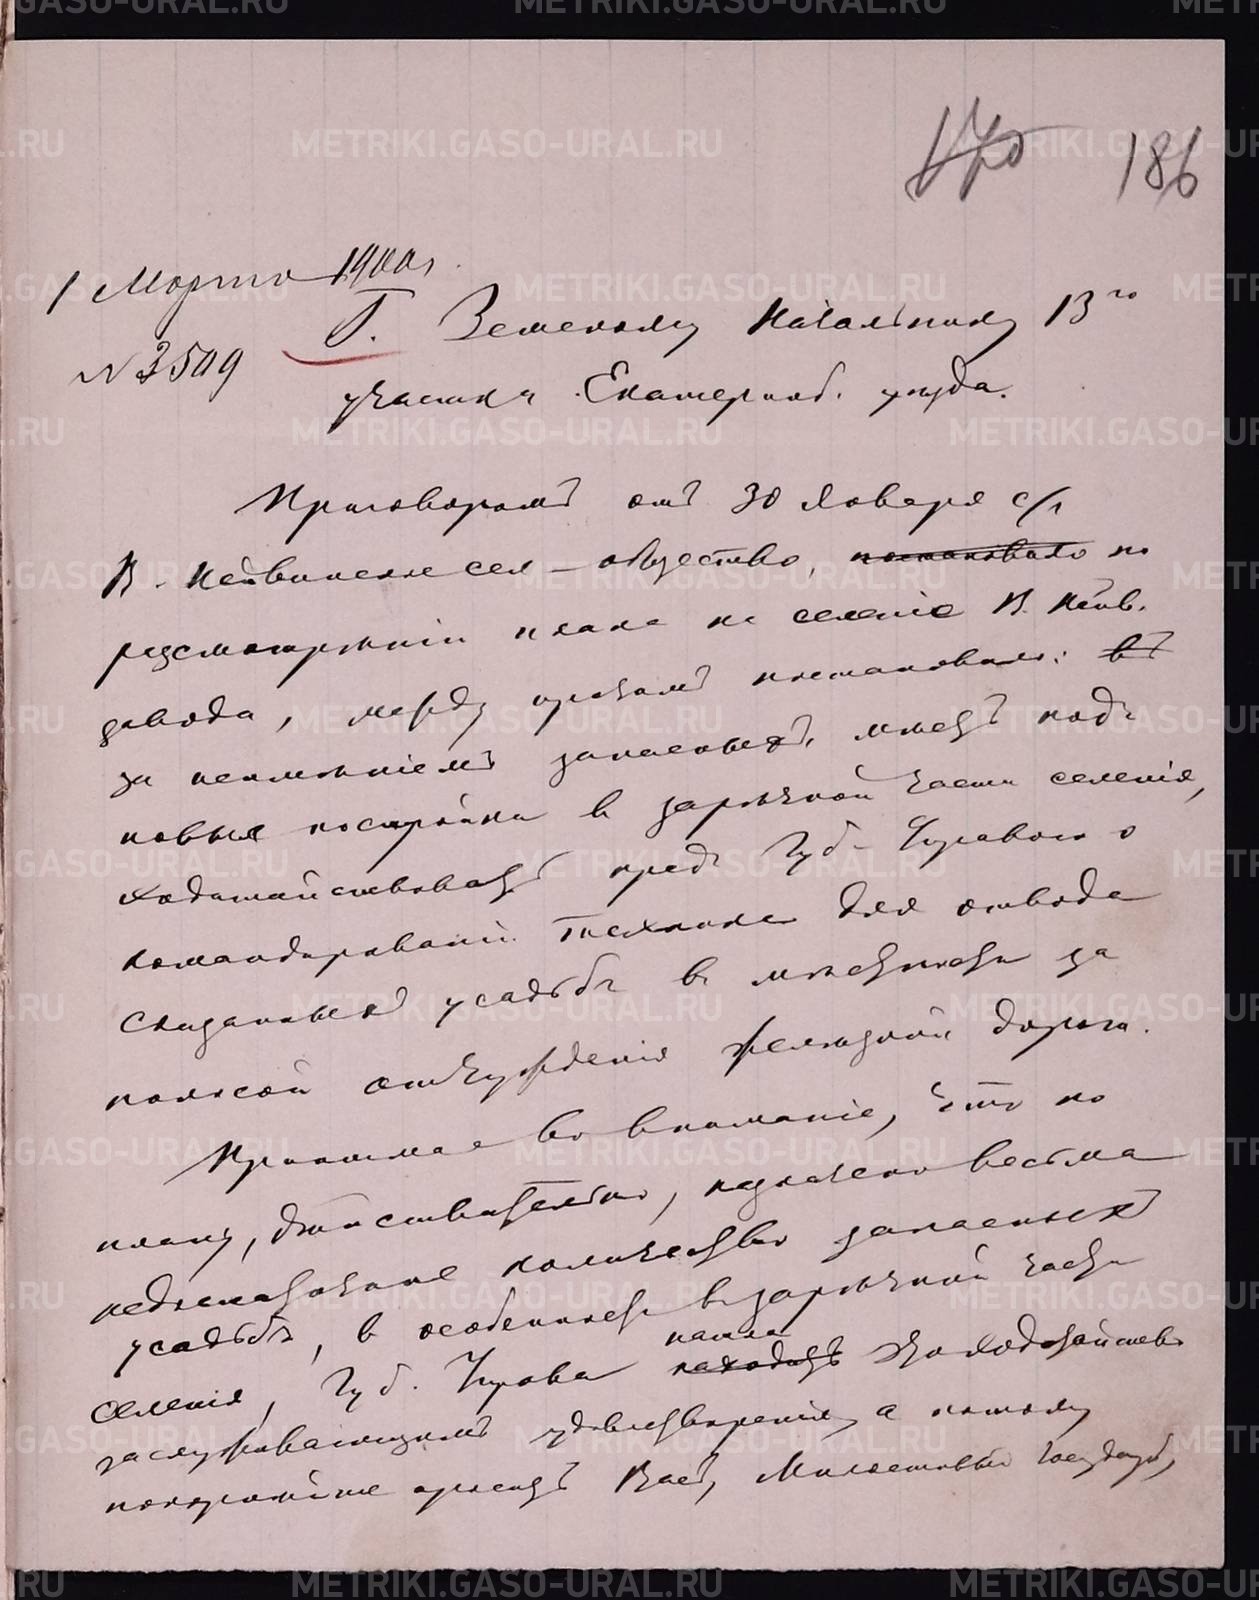 186
1 Марта 1900 г.
№ 3509
Г. Земскому Начальнику 13го
участка Екатеринб. уезда.
Приговоромъ отъ 30 Января с/г
В. Нейвинское сел. общество, постановило по
разсмотреніи плана на селеніе В. Нейв.
завода, между прочимъ постановило: въ
за неименіемъ запасныхъ местъ подъ
новыя постройки въ заречной части селенія,
ходатайствовать предъ Губ. Управою о
командированіи техника для отвода
сказанныхъ усадьбъ въ местности за
полосой отчужденія железной дороги.
Принимая во вниманіе, что по
плану, действительно, назначено весьма
недостаточное количество запасныхъ
усадьбъ, въ особенности въ заречной части
селенія, Губ. Управа находитъ нашла это ходатайство
заслуживающимъ удовлетворенія, а потому
покорнейше проситъ Васъ, Милостивый Государь,
METRIKI.GASO-URAL.RU